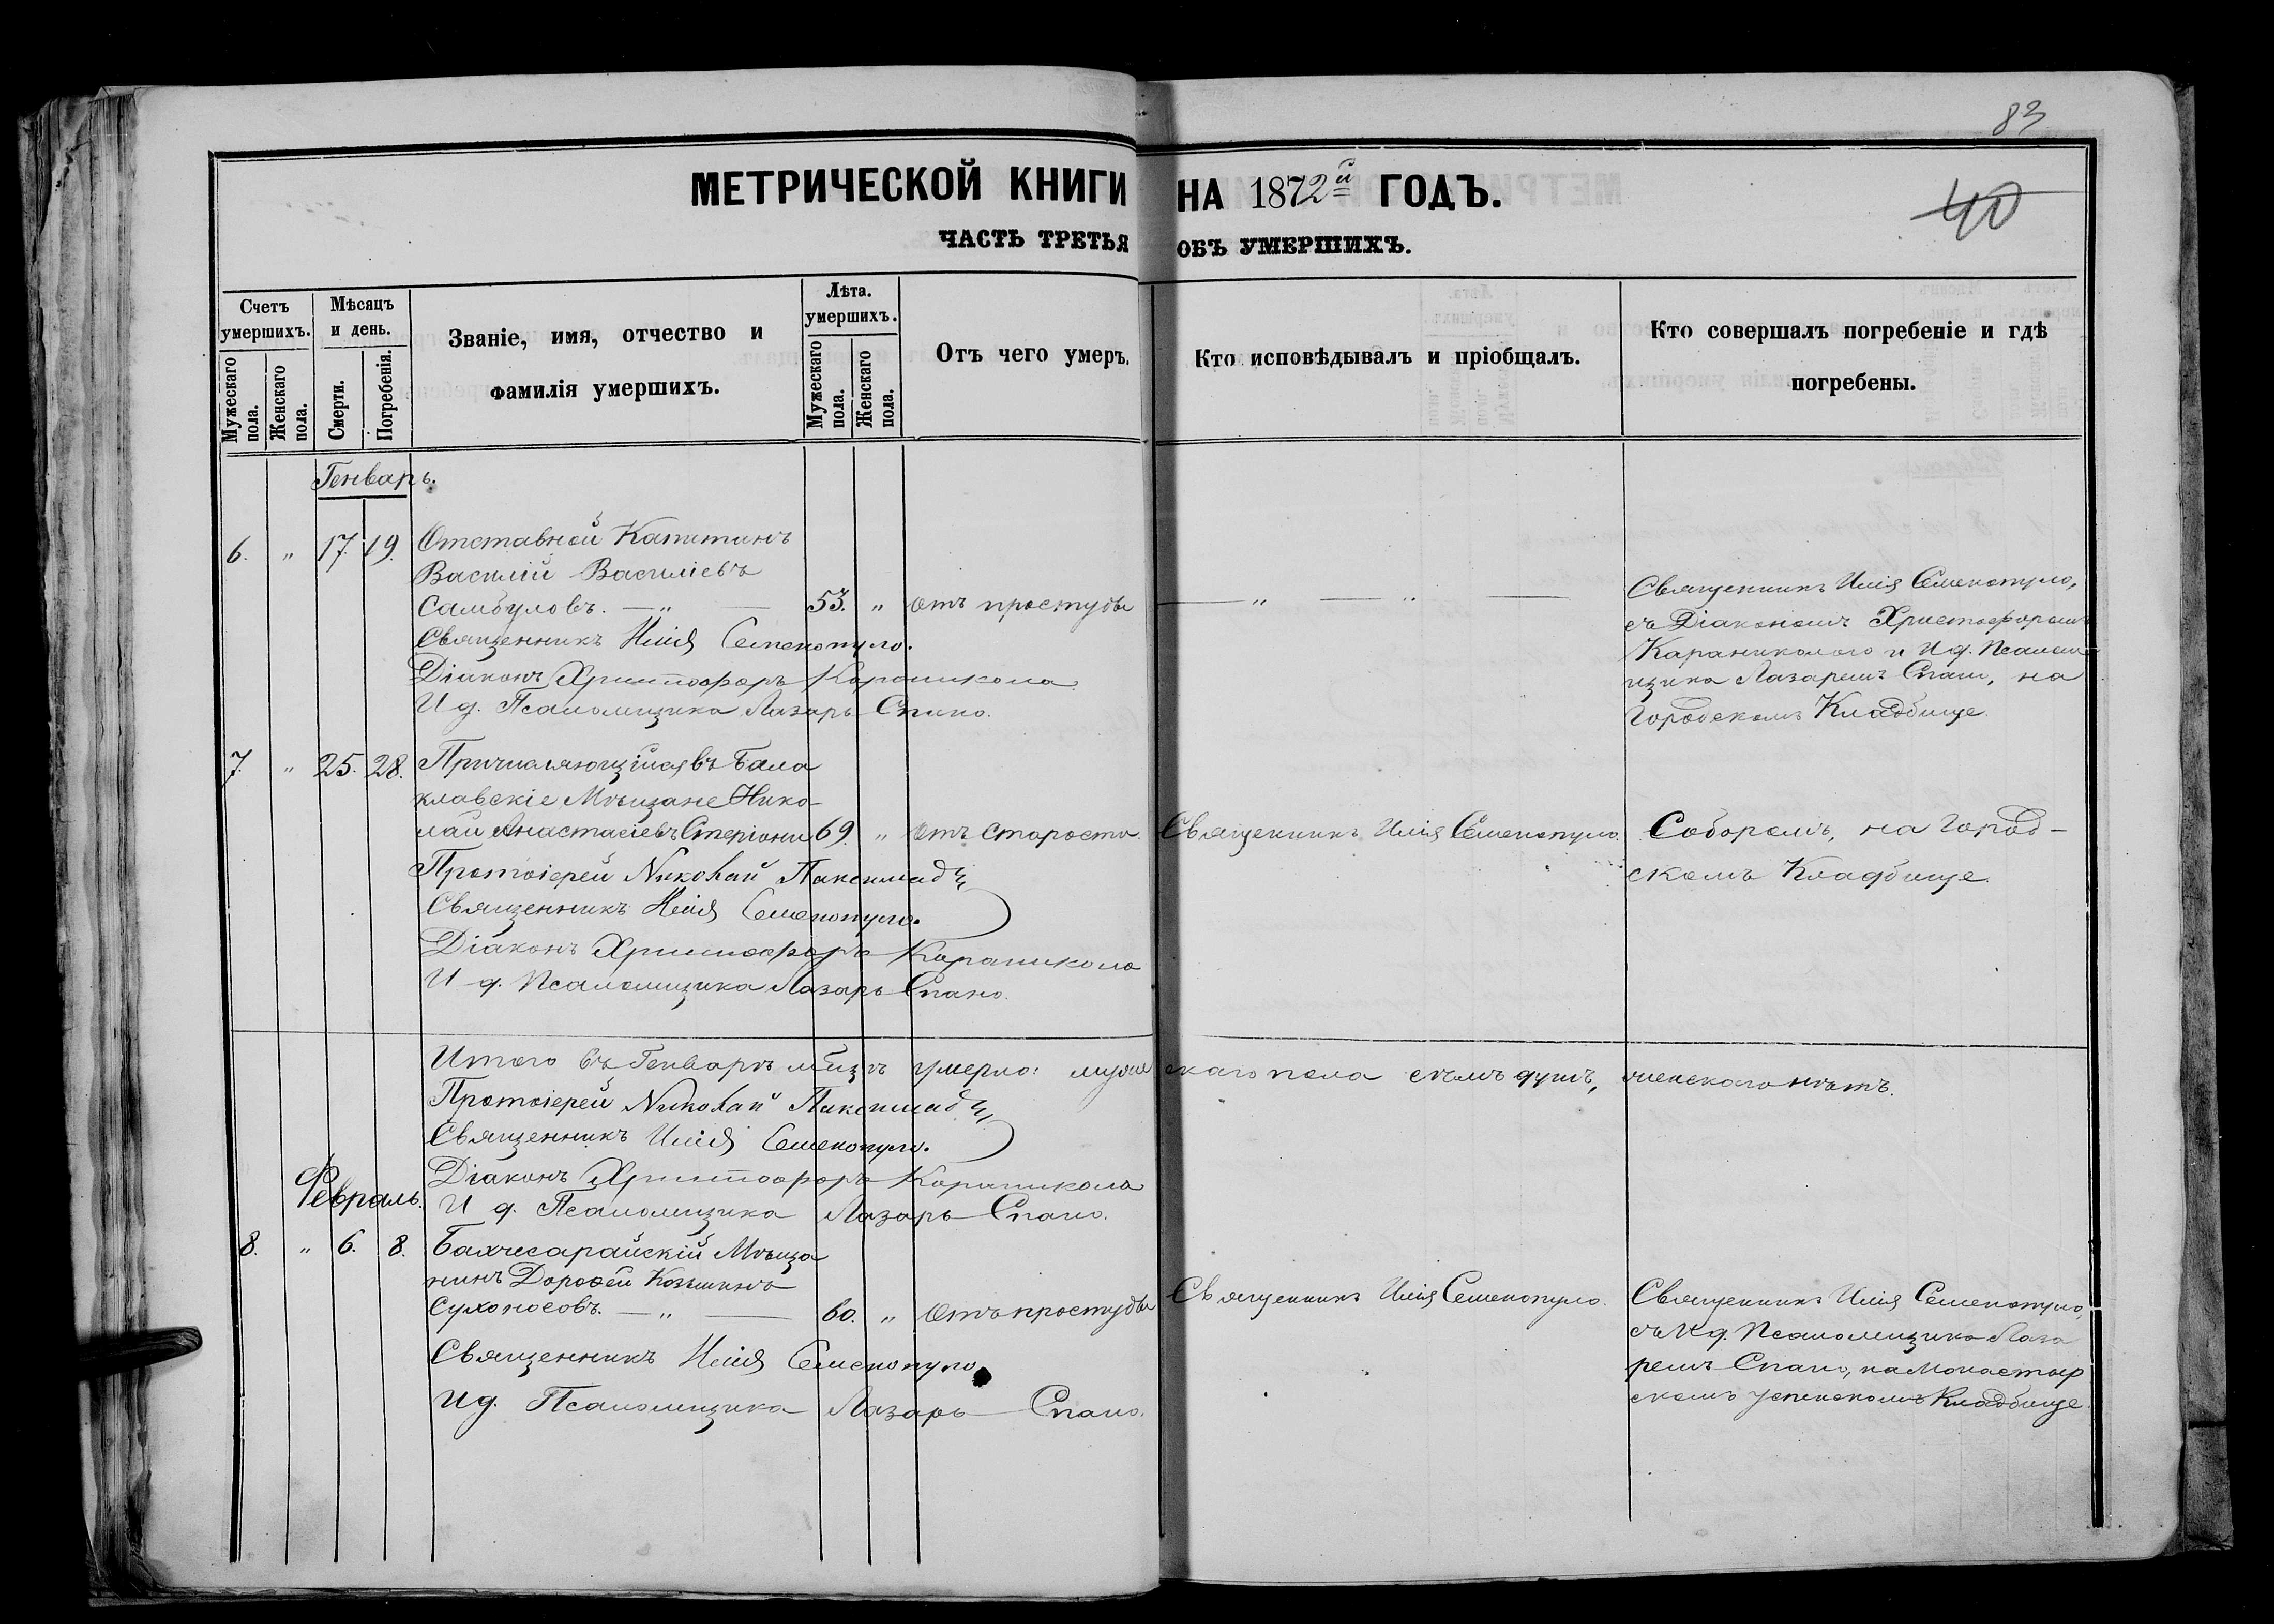 83
40
МЕТРИЧЕСКОЙ КНИГИ НА 1872й ГОДЪ.
ЧАСТЬ ТРЕТЬЯ ОБЪ УМЕРШИХЪ.
Счетъ умершихъ.
Мужескаго пола.
Женскаго пола.
Мѣсяцъ и день.
Смерти.
Погребенія.
Званіе, имя, отчество и
фамилія умершихъ.
Лѣта умершихъ.
Мужескаго пола.
Женскаго пола.
Отъ чего умеръ.
Кто исповѣдывалъ и пріобщалъ.
Кто совершалъ погребеніе и гдѣ
погребены.
Генварь.
6. " 17. 19. Отставной Капитанъ
Василій Василіевъ
Самбуловъ. — " — 53. " отъ простуды — " — " —
Священникъ Илія Семенопуло,
съ Діакономъ Христофоромъ
Караниколого и И. д. Псалом-
щика Лазаремъ Спано, на
Городскомъ Кладбище.
Священникъ Илія Семенопуло.
Діаконъ Христофоръ Караникола
И д. Псаломщика Лазарь Спано.
7. " 25. 28. Причисляющійся въ Бала
клавскіе Мѣщане Нико-
лай Анастасіевъ Стеріони 69. " отъ старости. Священникъ Илія Семенопуло. Соборомъ, на Город-
скомъ Кладбище.
Протоіерей Николай
Священникъ Илія Семенопуло.
Діаконъ Христофоръ Караникола
И д. Псаломщика Лазарь Спано.
Итого въ Генварѣ мѣсцѣ умерло: мужескаго пола семь душъ, женскаго нѣтъ.
Протоіерей Николай
Священникъ Илія Семенопуло.
Діаконъ Христофоръ Караникола
И д. Псаломщика Лазарь Спано.
Февраль.
8. " 6. 8. Бахчесарайскій Мѣща
нинъ Дорофей Козьминъ
Сухоносовъ. — " — 60. " Отъ простуды Священникъ Илія Семенопуло.
Священникъ Илія Семенопуло,
съ И д. Псаломщика Лаза
ремъ Спано, на Монастыр
скомъ Успенскомъ Кладбище.
Священникъ Илія Семенопуло.
И д. Псаломщика Лазарь Спано.